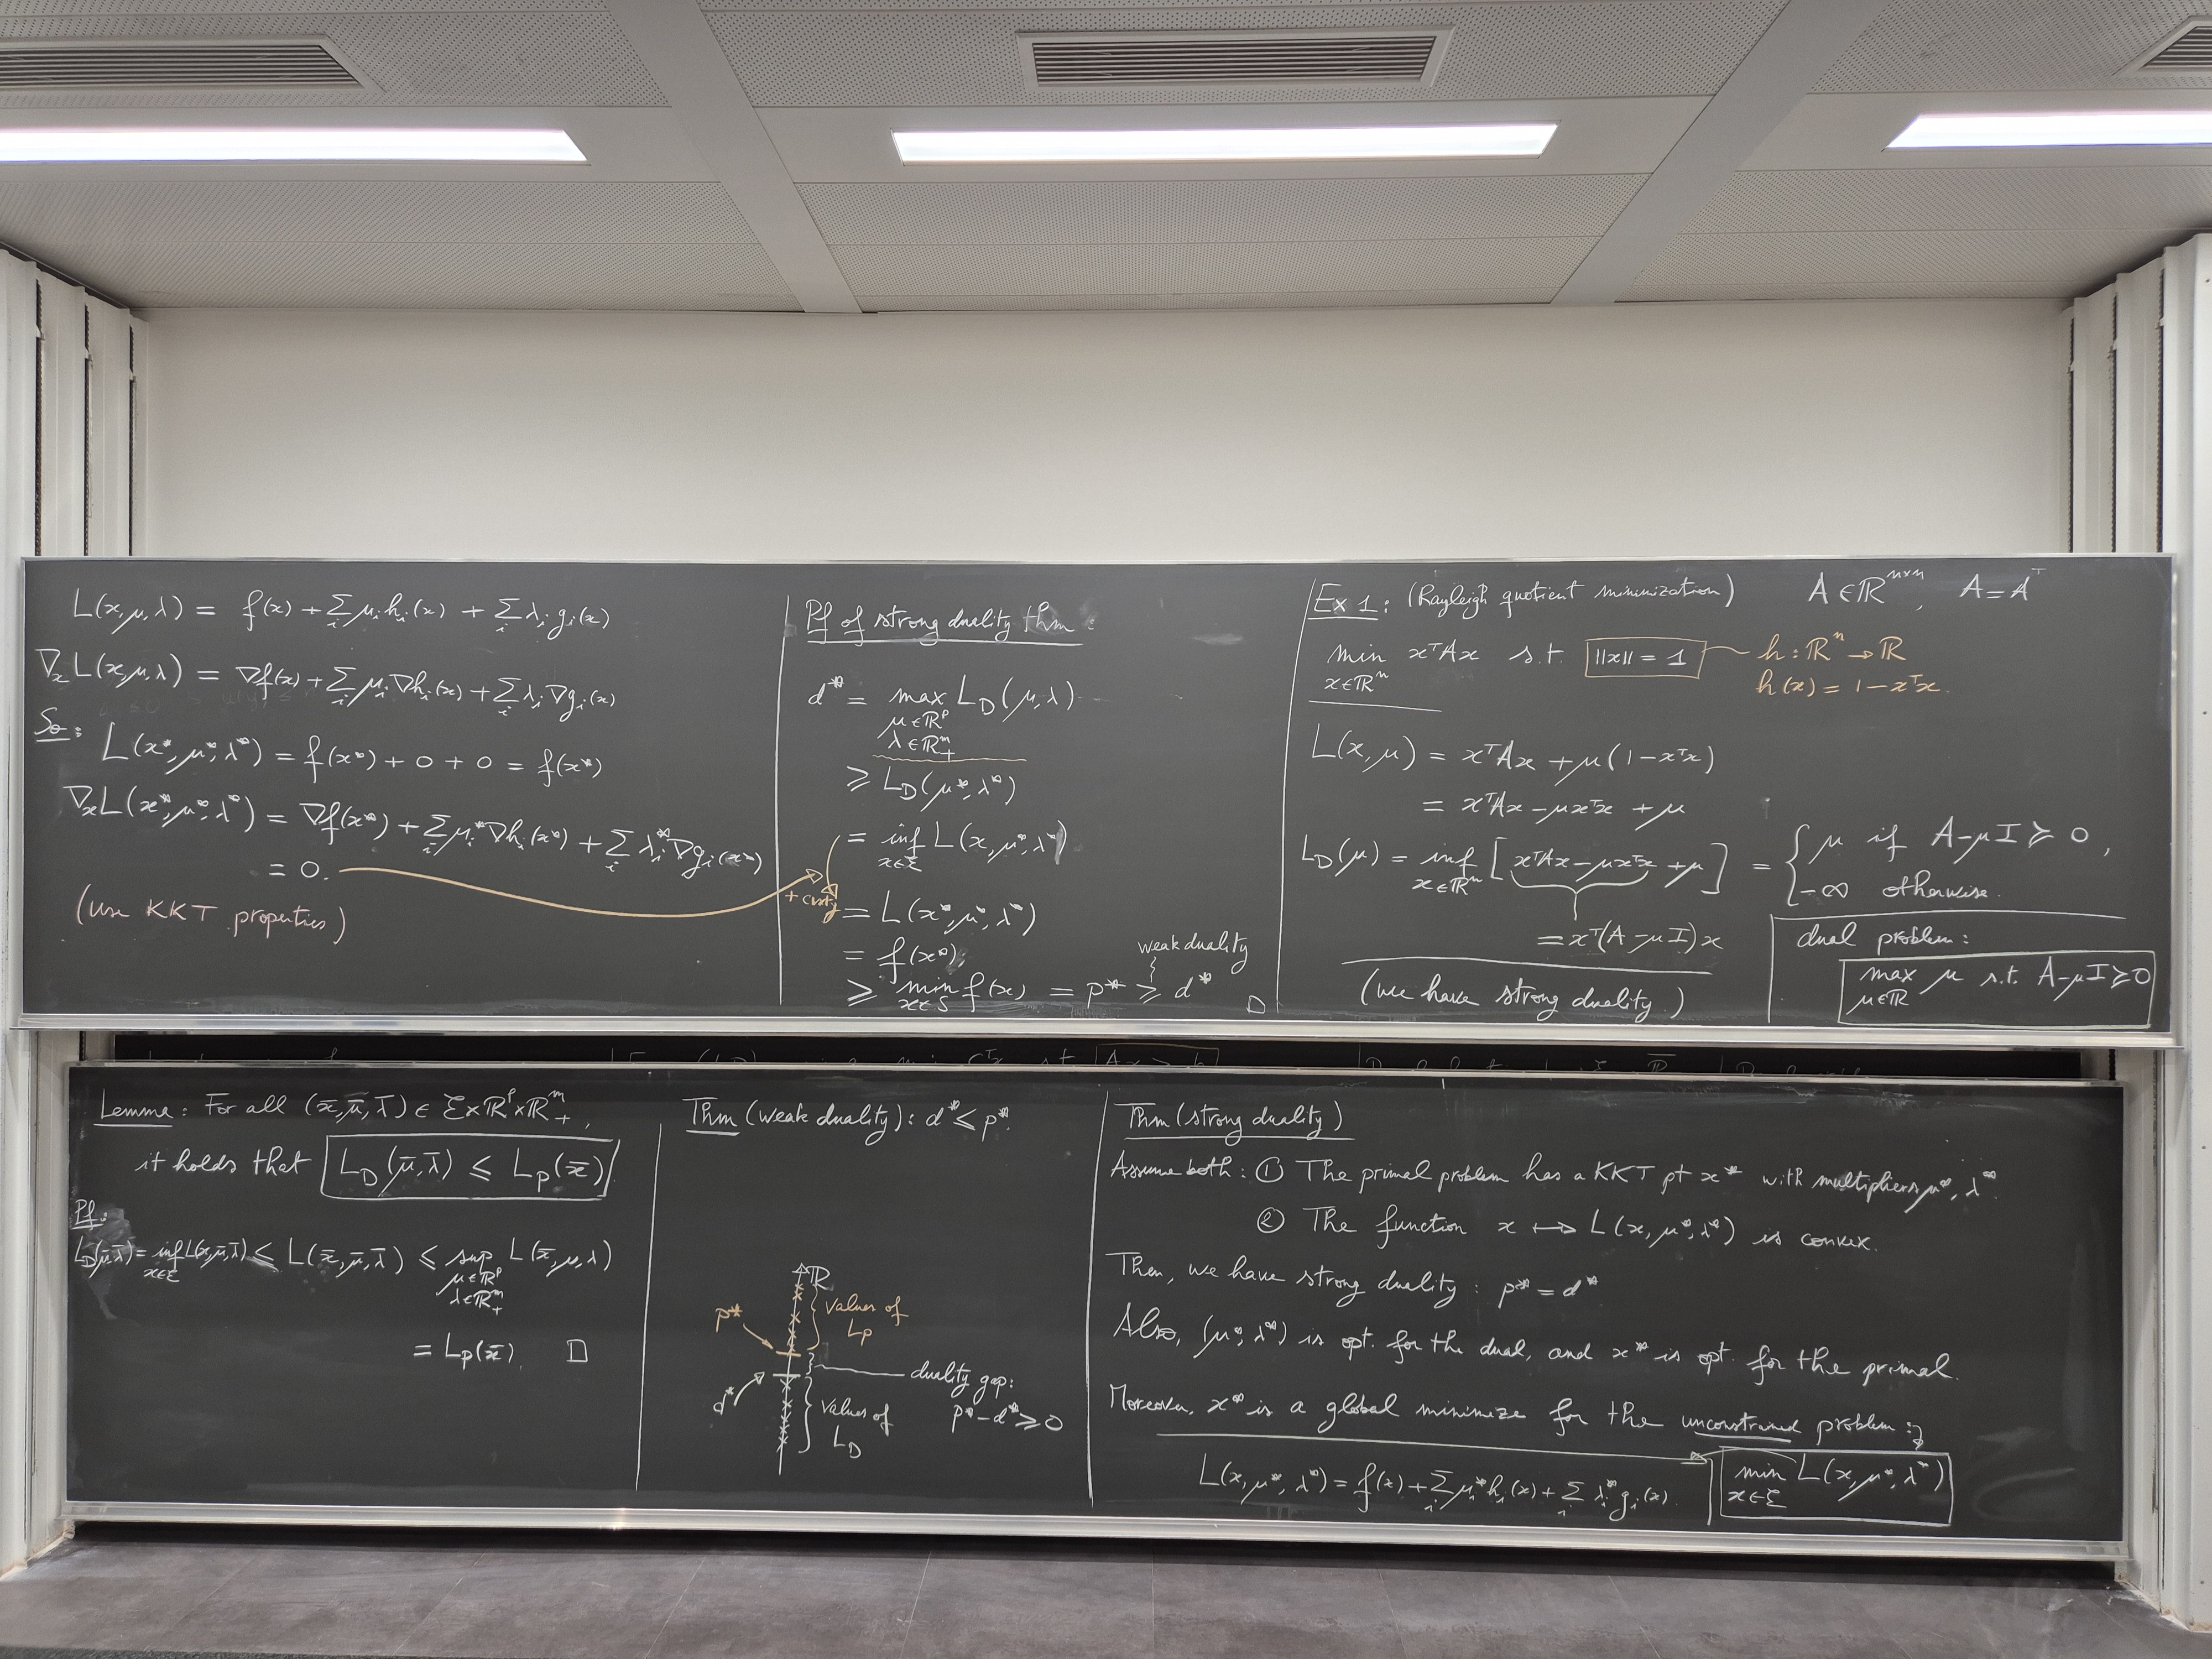 L(x,μ,λ) = f(x) + ∑_i μ_i h_i(x) + ∑_i λ_i g_i(x)
∇_x L(x,μ,λ) = ∇f(x) + ∑_i μ_i ∇h_i(x) + ∑_i λ_i ∇g_i(x)
So: L(x*,μ*,λ*) = f(x*) + 0 + 0 = f(x*)
∇_x L(x*,μ*,λ*) = ∇f(x*) + ∑_i μ_i* ∇h_i(x*) + ∑_i λ_i* ∇g_i(x*)
= 0.
(use KKT properties)
Pf of strong duality thm:
d* = max L_D(μ,λ)
μ∈ℝ^p
λ∈ℝ^m_+
≥ L_D(μ*,λ*)
= inf_{x∈ℰ} L(x,μ*,λ*)
+ cvxty
= L(x*,μ*,λ*)
= f(x*)
weak duality
≥ min_{x∈S} f(x) = p* ≥ d* □
Ex 1: (Rayleigh quotient minimization) A ∈ ℝ^{n×n}, A = A^T
min_{x∈ℝ^n} x^T A x s.t. ||x|| = 1
h: ℝ^n → ℝ
h(x) = 1 - x^T x.
L(x,μ) = x^T A x + μ(1 - x^T x)
= x^T A x - μ x^T x + μ
L_D(μ) = inf_{x∈ℝ^n} [x^T A x - μ x^T x + μ] = { μ if A - μI ≽ 0,
-∞ otherwise.
= x^T(A - μI)x
(we have strong duality.)
dual problem:
max_{μ∈ℝ} μ s.t. A - μI ≽ 0
Lemma: For all (x̄,μ̄,λ̄) ∈ ℰ×ℝ^p×ℝ^m_+,
it holds that L_D(μ̄,λ̄) ≤ L_P(x̄)
Pf:
L_D(μ̄,λ̄) = inf_{x∈ℰ} L(x,μ̄,λ̄) ≤ L(x̄,μ̄,λ̄) ≤ sup L(x̄,μ,λ)
μ∈ℝ^p
λ∈ℝ^m_+
= L_P(x̄). □
Thm (weak duality): d* ≤ p*.
ℝ
values of
L_P
p*
duality gap:
p* - d* ≥ 0
d*
values of
L_D
Thm (strong duality)
Assume both: ① The primal problem has a KKT pt x* with multipliers μ*, λ*.
② The function x ↦ L(x,μ*,λ*) is convex.
Then, we have strong duality: p* = d*
Also, (μ*,λ*) is opt. for the dual, and x* is opt. for the primal.
Moreover, x* is a global minimize for the unconstrained problem:
L(x,μ*,λ*) = f(x) + ∑_i μ_i* h_i(x) + ∑_i λ_i* g_i(x).
min_{x∈ℰ} L(x,μ*,λ*)